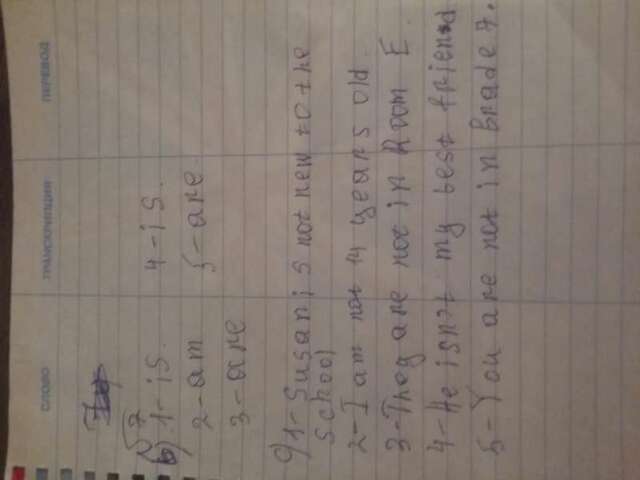 СЛОВО ТРАНСКРИПЦИЯ ПЕРЕВОД
√7
b) 1-is. 4-is.
2-am 5-are.
3-are
c) 1-Susan is not new to the
school
2-I am not 14 years old.
3-They are not in Room E.
4-He isn't my best friend
5-You are not in Grade 7.